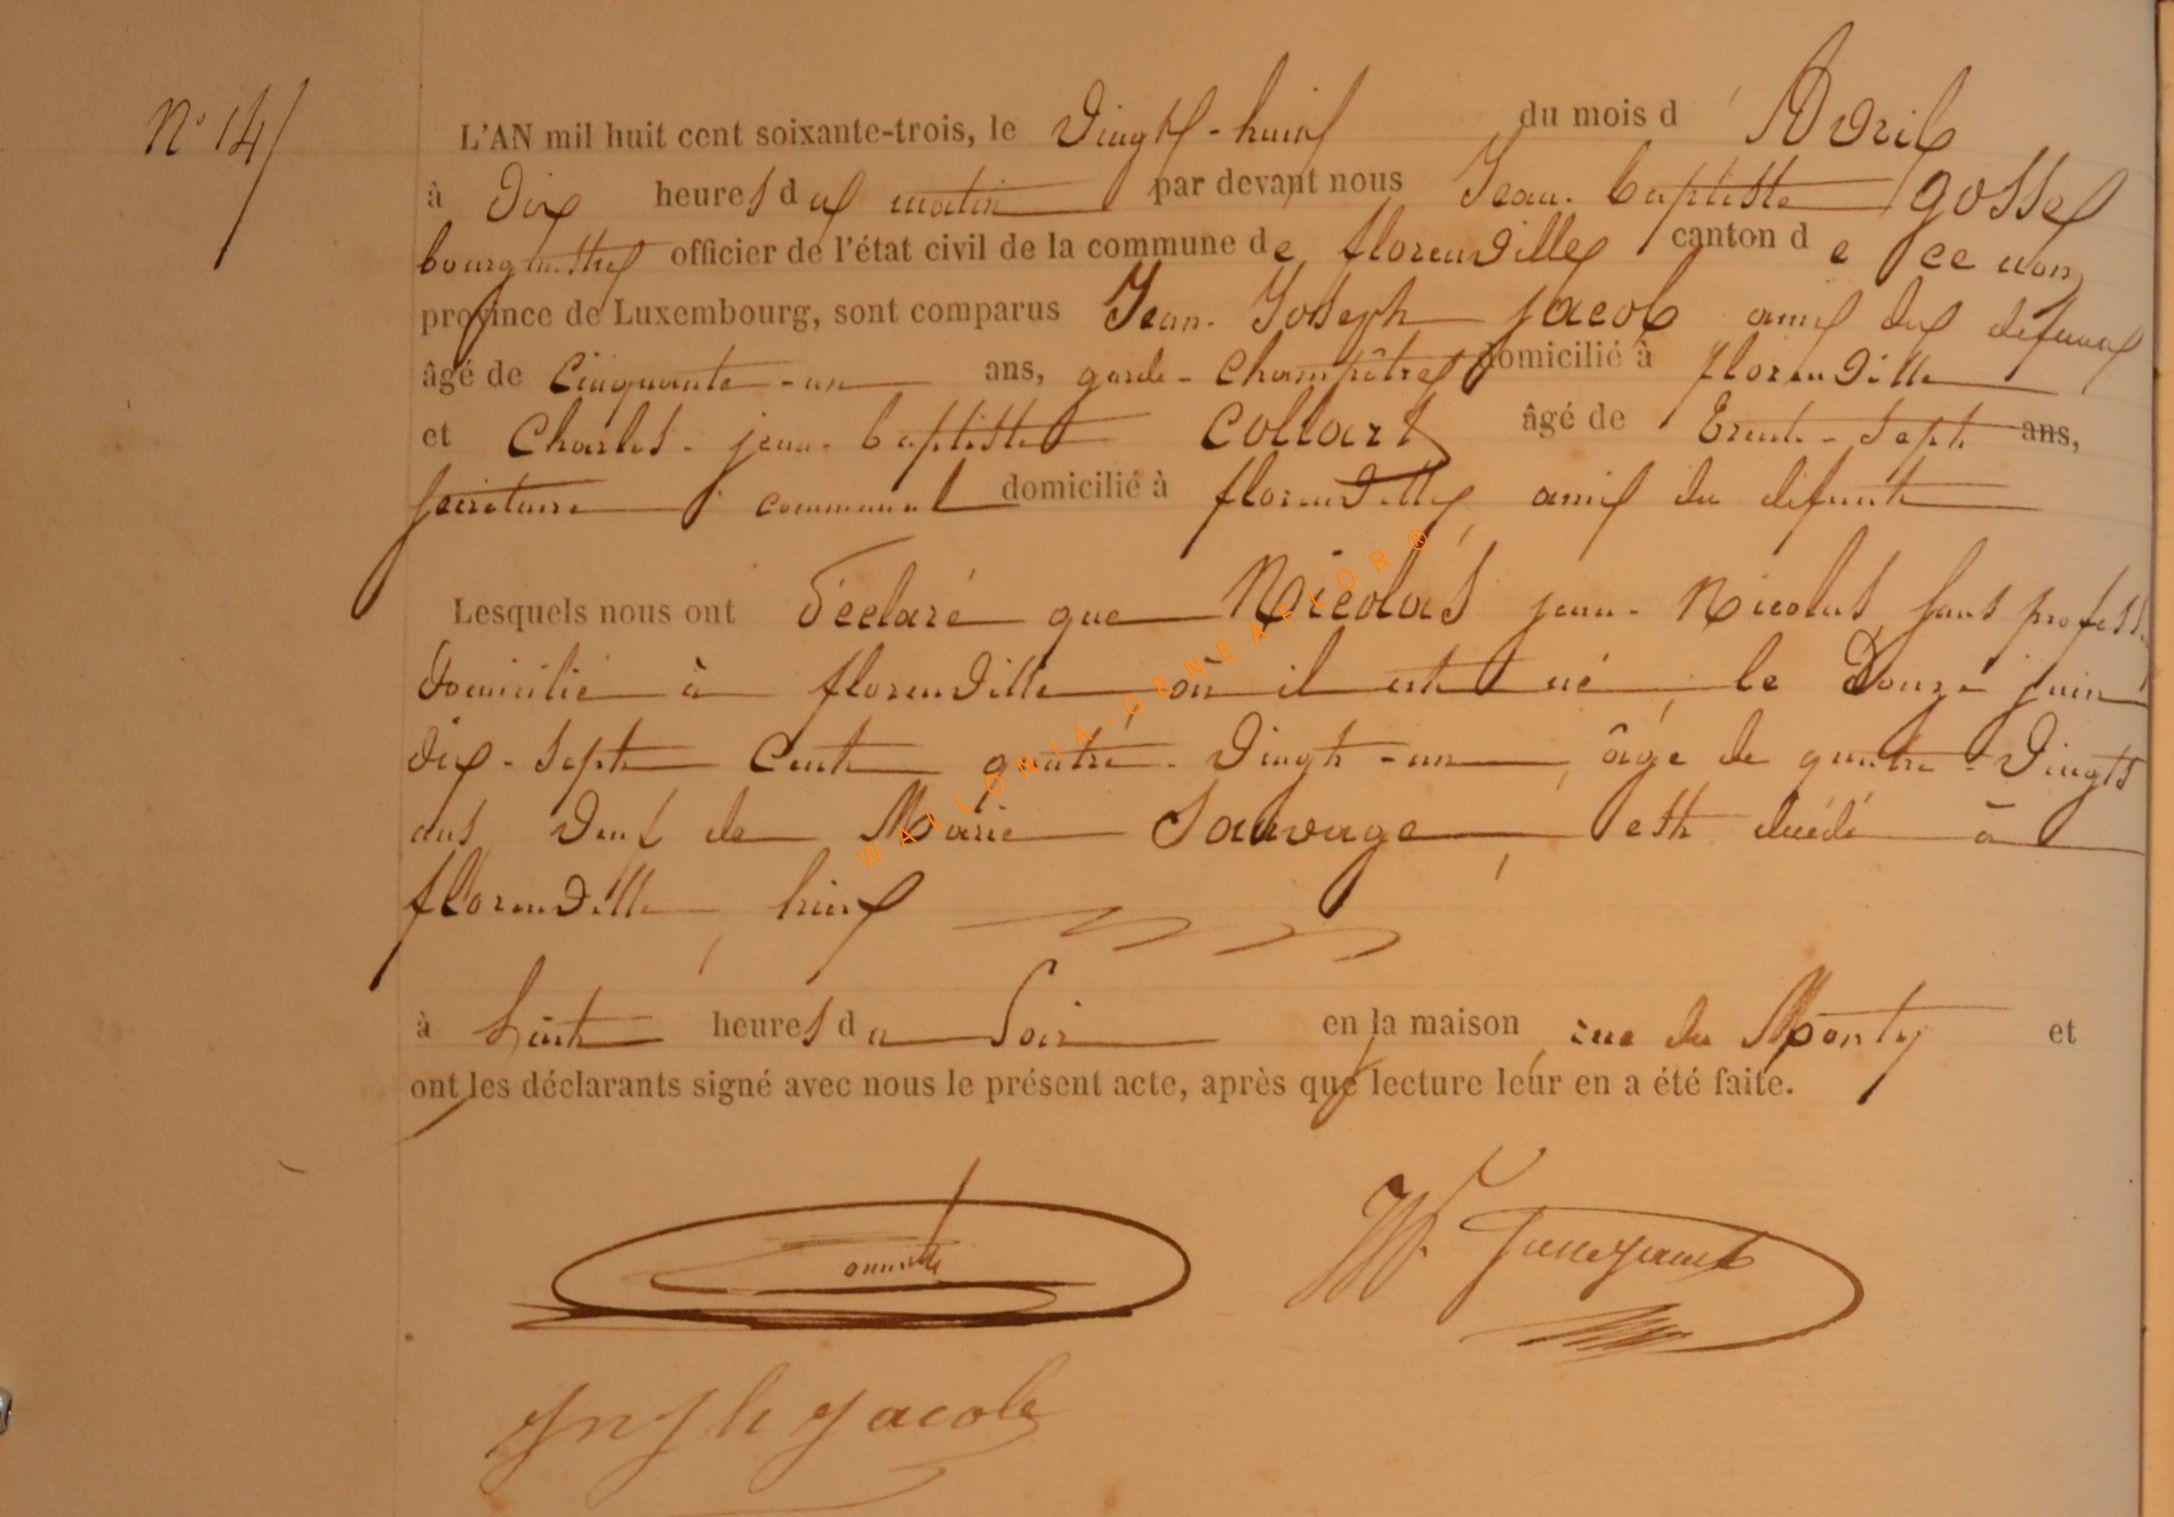 N° 14
L'AN mil huit cent soixante-trois, le Vingt-huit du mois d'Avril
à Dix heures du matin par devant nous Jean-baptiste gosse
bourgmestre officier de l'état civil de la commune de florenville canton de ce nom
province de Luxembourg, sont comparus Jean-Joseph jacob ami du défunt
âgé de Cinquante-un ans, garde-Champêtre domicilié à florenville
et Charles-jean-baptiste Collart âgé de Trente-sept ans,
secrétaire communal domicilié à florenville, ami du défunt
Lesquels nous ont déclaré que Nicolas jean-Nicolas, sans profess
domicilié à florenville où il est né, le Douze juin
dix-sept Cent quatre-Vingt-un, âgé de quatre-Vingts
ans Veuf de Marie Sauvage, est décédé à
florenville, hier
à huit heures du Soir en la maison, rue du Monty et
ont les déclarants signé avec nous le présent acte, après que lecture leur en a été faite.
Jacob
WALLONIA-GENEAFLOR®